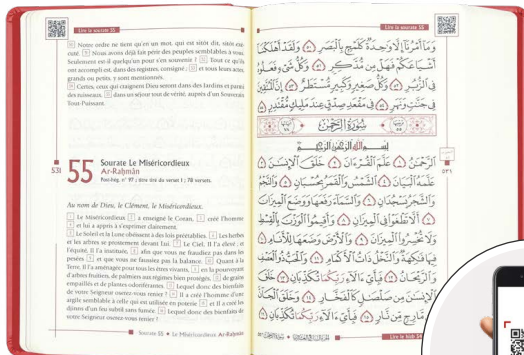 Lire la sourate 55
50 Notre ordre ne tient qu'en un mot, qui est sitôt dit, sitôt exé-
cuté. 51 Nous avons déjà fait périr des peuples semblables à vous.
Seulement est-il quelqu'un pour s'en souvenir ? 52 Tout ce qu'ils
ont accompli est, dans des registres, consigné ; 53 et tous leurs actes,
grands ou petits, y sont mentionnés.
54 Certes, ceux qui craignent Dieu seront dans des Jardins et parmi
des ruisseaux, 55 dans un séjour tout de vérité, auprès d'un Souverain
Tout-Puissant.
531
55
Sourate Le Miséricordieux
Ar-Rahmân
Post-hég. n° 97 ; tire titre du verset 1 ; 78 versets.
Au nom de Dieu, le Clément, le Miséricordieux.
1 Le Miséricordieux 2 a enseigné le Coran, 3 créé l'homme
4 et lui a appris à s'exprimer clairement.
5 Le Soleil et la Lune obéissent à des lois préétablies. 6 Les herbes
et les arbres se prosternent devant Lui. 7 Le Ciel, Il l'a élevé ; et
l'équité, Il l'a instituée, 8 afin que vous ne fraudiez pas dans les
pesées 9 et que vous ne faussiez pas la balance. 10 Quant à la
Terre, Il l'a aménagée pour tous les êtres vivants, 11 en la pourvoyant
d'arbres fruitiers, de palmiers aux régimes bien protégés, 12 de grains
empaillés et de plantes odoriférantes. 13 Lequel donc des bienfaits
de votre Seigneur oserez-vous renier ? 14 Il a créé l'homme d'une
argile semblable à celle qui est utilisée en poterie 15 et Il a créé les
djinns d'un feu subtil sans fumée. 16 Lequel donc des bienfaits de
votre Seigneur oserez-vous renier ?
Sourate 55 • Le Miséricordieux Ar-Rahmân
Lire la sourate 55
وَمَآ أَمْرُنَآ إِلَّا وَٰحِدَةٌ كَلَمْحٍۭ بِٱلْبَصَرِ ۝٥٠ وَلَقَدْ أَهْلَكْنَآ
أَشْيَاعَكُمْ فَهَلْ مِن مُّدَّكِرٍ ۝٥١ وَكُلُّ شَىْءٍ فَعَلُوهُ
فِى ٱلزُّبُرِ ۝٥٢ وَكُلُّ صَغِيرٍ وَكَبِيرٍ مُّسْتَطَرٌ ۝٥٣ إِنَّ ٱلْمُتَّقِينَ
فِى جَنَّٰتٍ وَنَهَرٍ ۝٥٤ فِى مَقْعَدِ صِدْقٍ عِندَ مَلِيكٍ مُّقْتَدِرٍۭ ۝٥٥
سُورَةُ الرَّحْمٰن
بِسْمِ ٱللَّهِ ٱلرَّحْمَٰنِ ٱلرَّحِيمِ
ٱلرَّحْمَٰنُ ۝١ عَلَّمَ ٱلْقُرْءَانَ ۝٢ خَلَقَ ٱلْإِنسَٰنَ ۝٣
عَلَّمَهُ ٱلْبَيَانَ ۝٤ ٱلشَّمْسُ وَٱلْقَمَرُ بِحُسْبَانٍ ۝٥ وَٱلنَّجْمُ
وَٱلشَّجَرُ يَسْجُدَانِ ۝٦ وَٱلسَّمَآءَ رَفَعَهَا وَوَضَعَ ٱلْمِيزَانَ
۝٧ أَلَّا تَطْغَوْا۟ فِى ٱلْمِيزَانِ ۝٨ وَأَقِيمُوا۟ ٱلْوَزْنَ بِٱلْقِسْطِ
وَلَا تُخْسِرُوا۟ ٱلْمِيزَانَ ۝٩ وَٱلْأَرْضَ وَضَعَهَا لِلْأَنَامِ ۝١٠
فِيهَا فَٰكِهَةٌ وَٱلنَّخْلُ ذَاتُ ٱلْأَكْمَامِ ۝١١ وَٱلْحَبُّ ذُو ٱلْعَصْفِ
وَٱلرَّيْحَانُ ۝١٢ فَبِأَىِّ ءَالَآءِ رَبِّكُمَا تُكَذِّبَانِ ۝١٣ خَلَقَ
ٱلْإِنسَٰنَ مِن صَلْصَٰلٍ كَٱلْفَخَّارِ ۝١٤ وَخَلَقَ ٱلْجَآنَّ
مِن مَّارِجٍ مِّن نَّارٍ ۝١٥ فَبِأَىِّ ءَالَآءِ رَبِّكُمَا تُكَذِّبَانِ ۝١٦
٥٣١
Lire la sourate